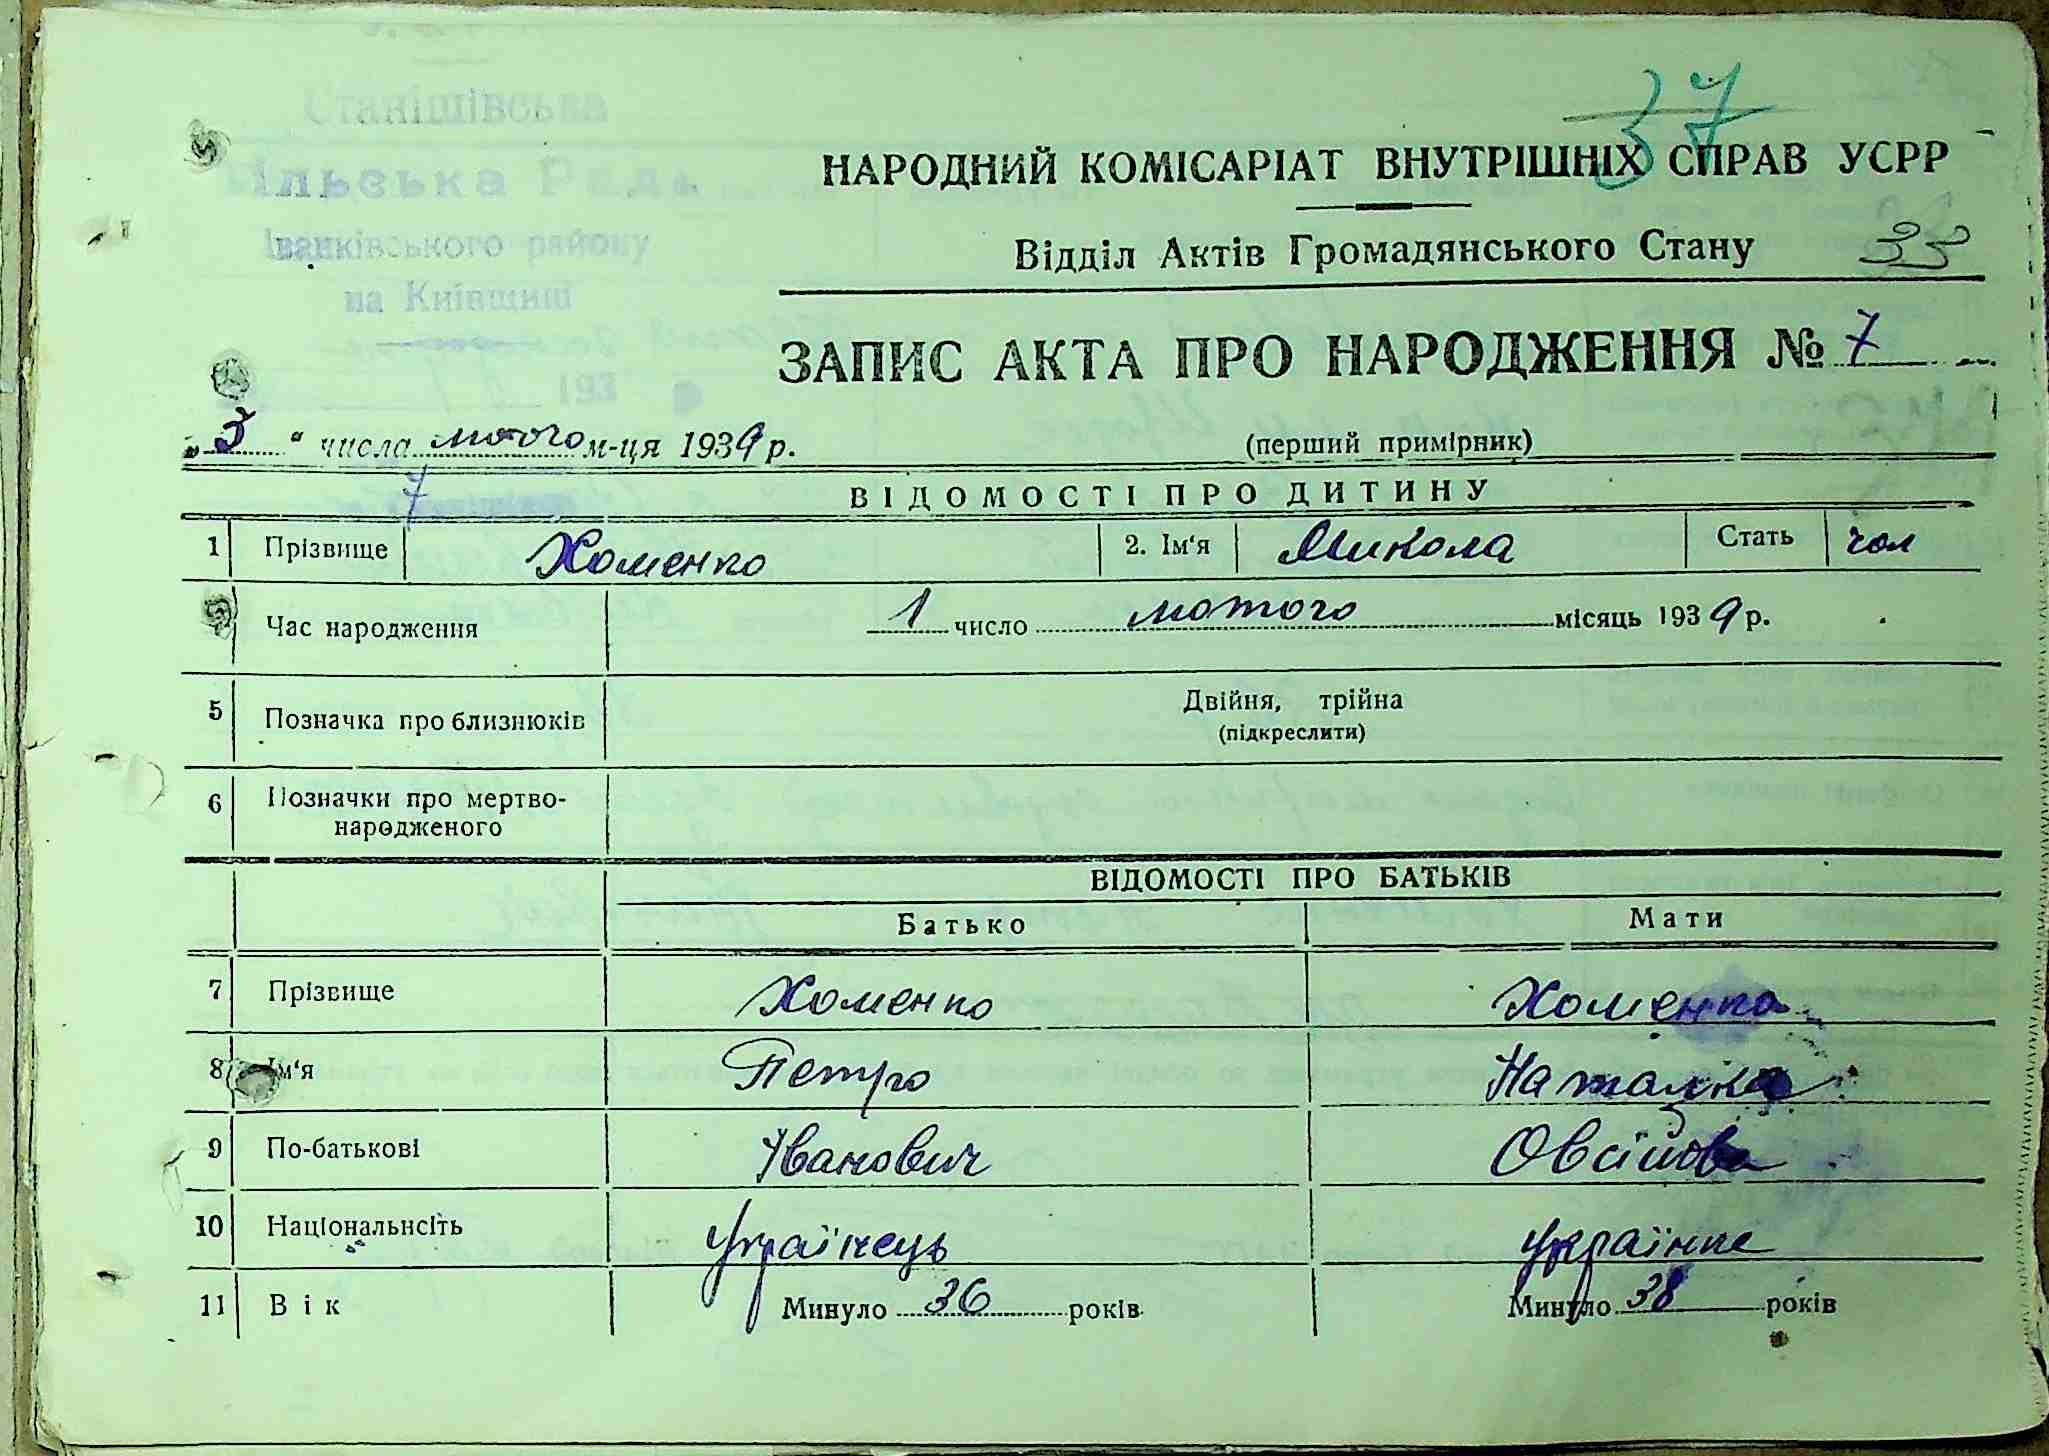 37
Станішівська
Сільська Рада
Іванківського району
на Київщині
193
НАРОДНИЙ КОМІСАРІАТ ВНУТРІШНІХ СПРАВ УСРР
Відділ Актів Громадянського Стану 33
ЗАПИС АКТА ПРО НАРОДЖЕННЯ № 7
„3“ числа лютого м-ця 1939 р. (перший примірник)
7
ВІДОМОСТІ ПРО ДИТИНУ
1 Прізвище Хоменко 2. Ім'я Микола Стать чол
Час народження 1 число лютого місяць 1939 р.
5 Позначка про близнюків Двійня, трійна
(підкреслити)
6 Позначки про мертво-
народженого
ВІДОМОСТІ ПРО БАТЬКІВ
Батько Мати
7 Прізвище Хоменко Хоменко
8 Ім'я Петро Наталка
9 По-батькові Іванович Овсійова
10 Національнсіть Українець українка
11 Вік Минуло 36 років Минуло 38 років